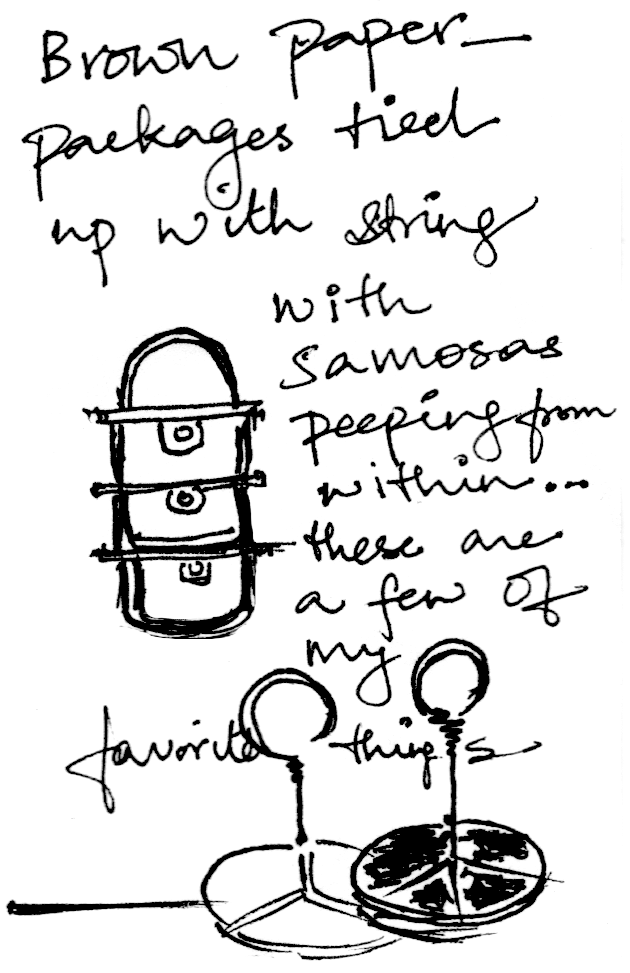 Brown paper
packages tied
up with string
with
samosas
peeping from
within...
these are
a few of
my
favorite things